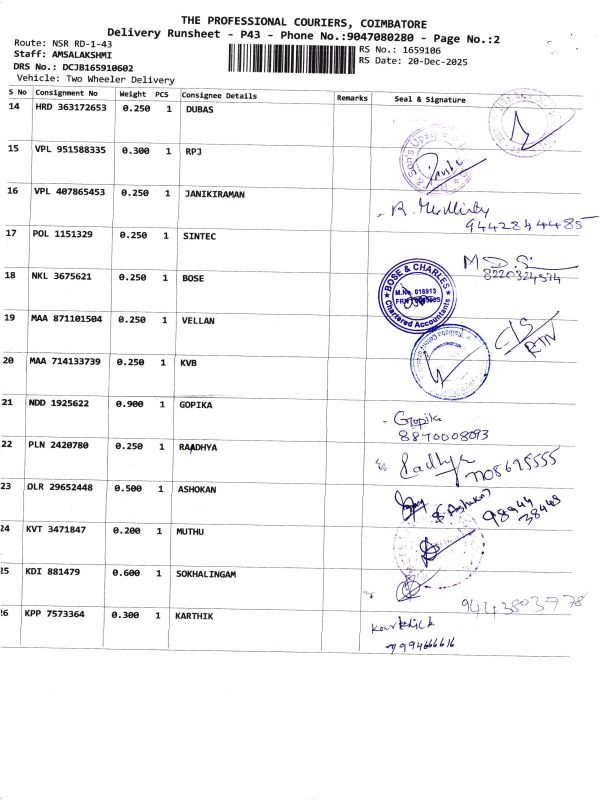 THE PROFESSIONAL COURIERS, COIMBATORE
Delivery Runsheet - P43 - Phone No.:9047080280 - Page No.:2
Route: NSR RD-1-43
Staff: AMSALAKSHMI
DRS No.: DCJB165910602
Vehicle: Two Wheeler Delivery
RS No.: 1659106
RS Date: 20-Dec-2025
S No Consignment No Weight PCS Consignee Details Remarks Seal & Signature
14 HRD 363172653 0.250 1 DUBAS
15 VPL 951588335 0.300 1 RPJ
16 VPL 407865453 0.250 1 JANIKIRAMAN
R. 9442844485
17 POL 1151329 0.250 1 SINTEC
M D. S
8220324574
18 NKL 3675621 0.250 1 BOSE
BOSE & CHARLES
M.No. 018913
Chartered Accountants
19 MAA 871101504 0.250 1 VELLAN
C/S
RTN
20 MAA 714133739 0.250 1 KVB
21 NDD 1925622 0.900 1 GOPIKA
Gopika
8870008093
22 PLN 2420780 0.250 1 RAADHYA
Radhya 7708625555
23 OLR 29652448 0.500 1 ASHOKAN
(Ashokan) 98944
38448
24 KVT 3471847 0.200 1 MUTHU
25 KDI 881479 0.600 1 SOKHALINGAM
9443803778
26 KPP 7573364 0.300 1 KARTHIK
Karthick
7994666616